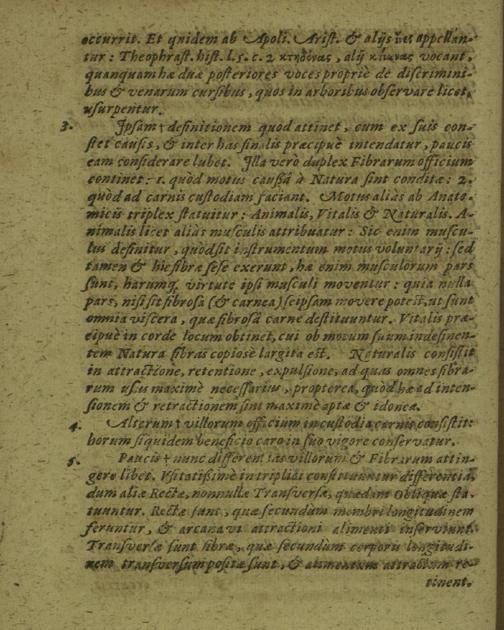 occurrit. Et quidem ab Apoll. Arist. & alijs ἶνες appellan-
tur: Theophrast. hist. l. 5. c. 2 κτηδόνας, alij vocant,
quanquam hæ duæ posteriores voces propriè de discrimini-
bus & venarum cursibus, quos in arboribus observare licet,
usurpentur.
3. Ipsam † definitionem quod attinet, cum ex suis con-
stet causis, & inter has finalis præcipuè intendatur, paucis
eam considerare lubet. Illa verò duplex Fibrarum officium
continet: 1. quòd motus caussâ à Natura sint conditæ: 2.
quòd ad carnis custodiam faciant. Motus aliàs ab Anato-
micis triplex statuitur: Animalis, Vitalis & Naturalis. A-
nimalis licet aliàs musculis attribuatur: Sic enim muscu-
lus definitur, quòd sit instrumentum motus voluntarij: sed
tamen & hîc fibræ sese exerunt, hæ enim musculorum pars
sunt, harumq; virtute ipsi musculi moventur: quia nulla
pars, nisi sit fibrosa (& carnea) seipsam movere potest, ut sunt
omnia viscera, quæ fibrosâ carne destituuntur. Vitalis præ-
cipuè in corde locum obtinet, cui ob motum suum indesinen-
tem Natura fibras copiosè largita est. Naturalis consistit
in attractione, retentione, expulsione, ad quas omnes fibra-
rum usus maximè necessarius, propterea, quòd hæ ad inten-
sionem & retractionem sint maximè aptæ & idoneæ.
4. Alterum † villorum officium in custodia carnis consistit:
horum siquidem beneficio caro in suo vigore conservatur.
5. Paucis † nunc differentias villorum & Fibrarum attin-
gere libet. Usitatissimè in triplici constituuntur differentia,
dum aliæ Rectæ, nonnullæ Transversæ, quædam Obliquæ sta-
tuuntur. Rectæ sunt, quæ secundùm membri longitudinem
feruntur, & arcana vi attractioni alimenti inserviunt.
Transversæ sunt fibræ, quæ secundùm corporis longitudi-
nem transversum positæ sunt, & alimentum attractum re-
tinent.